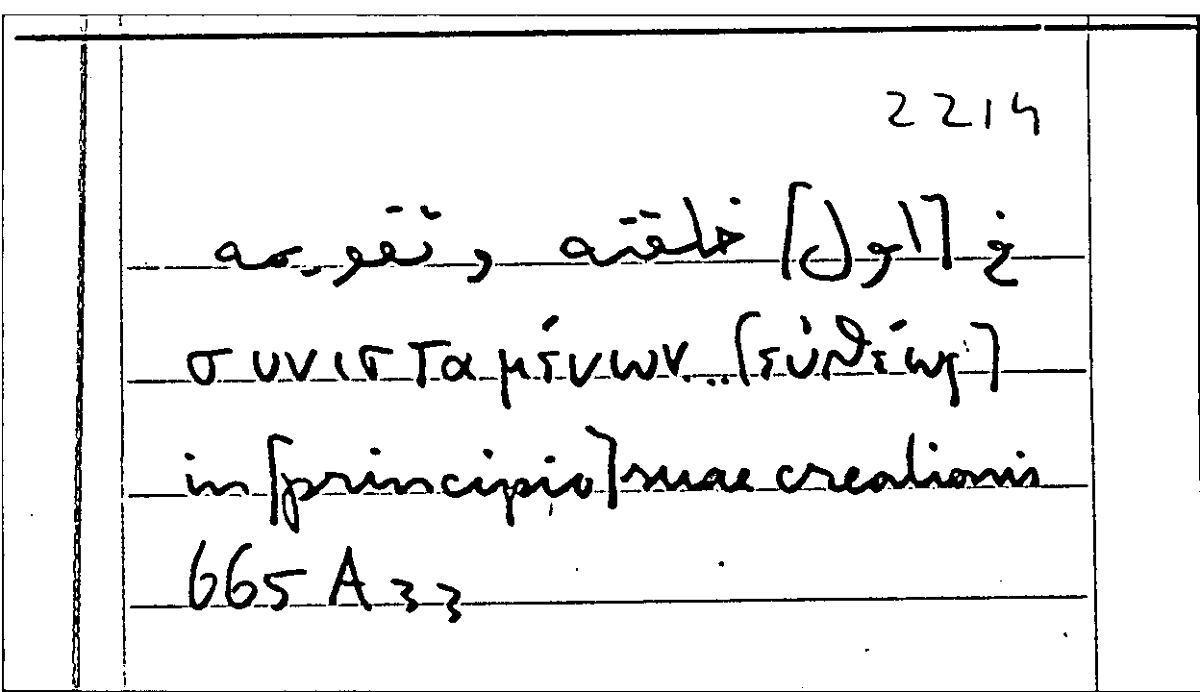 2214
في [اول] خلقته وتقويمه
συνισταμένων..[εὐθέως]
in [principio] suae creationis
665 A 33